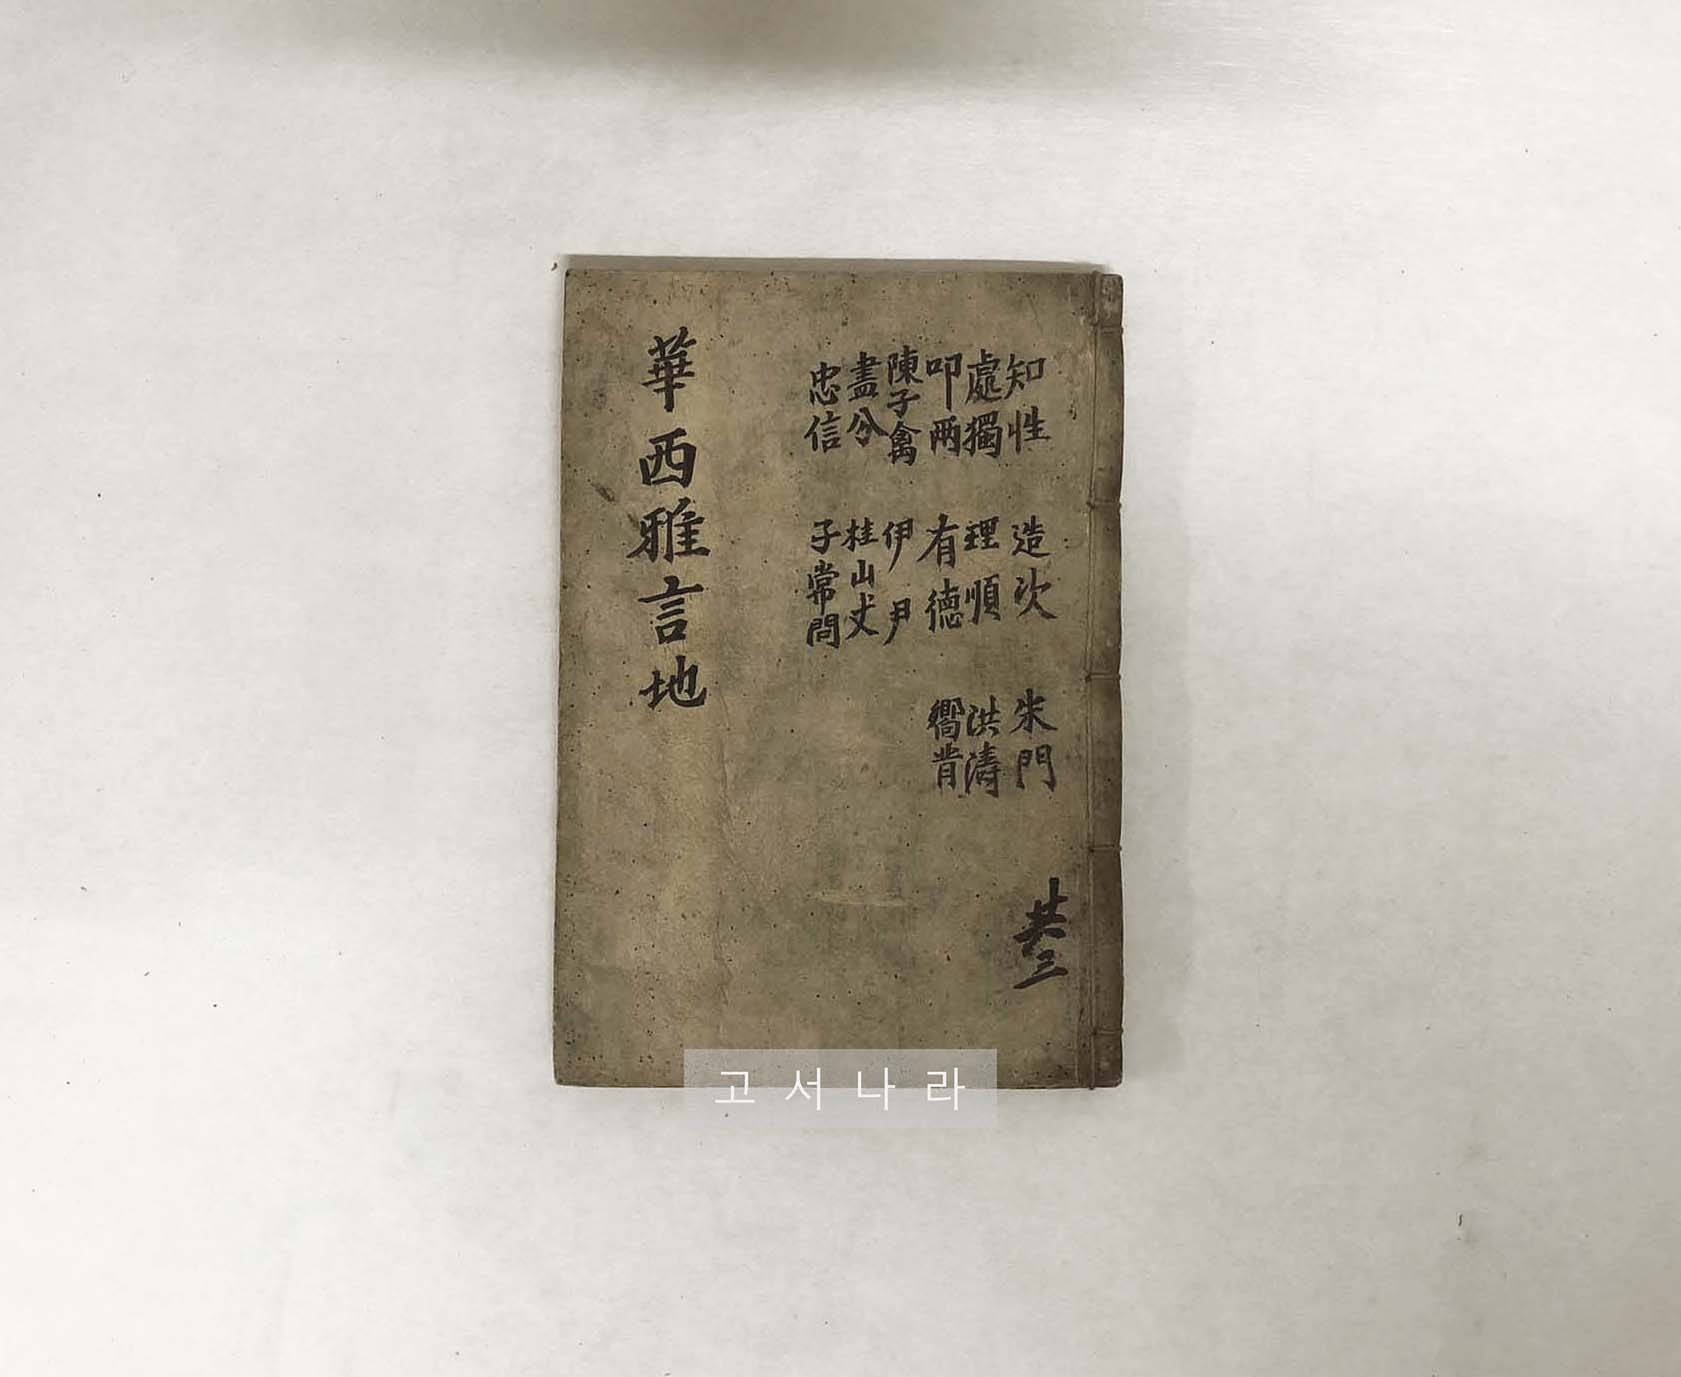 華西雅言 地
知性 造次 朱門
處獨 理順 洪濤
叩兩 有德 嚮背
陳子禽 伊尹
盡分 桂山丈
忠信 子常問
共三
고서나라